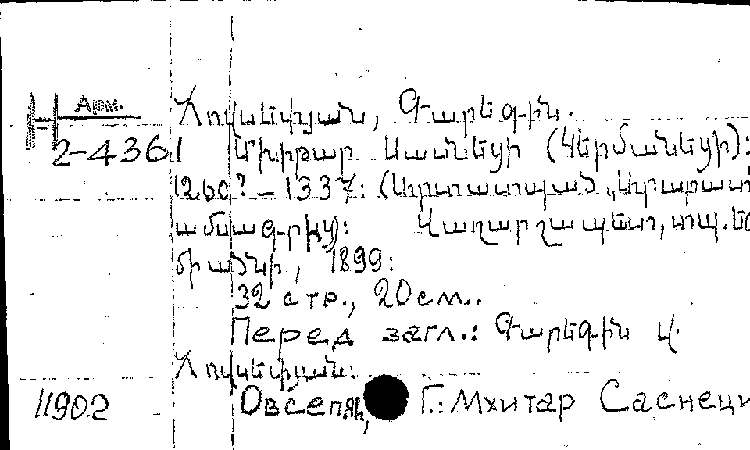 Арм.
2-4361
Հովսեփյան, Գարեգին.
Մխիթար Սանեցի (Գերմանեցի):
1260?-1337: (Արտատպած „Արարատ"
ամսագրից): Վաղարշապատ, տպ. Էջ
միածնի, 1899:
32 стр., 20 см..
Перед загл.: Գարեգին վ.
Հովսեփյան:
11902 Овсепян, Г.: Мхитар Саснеци